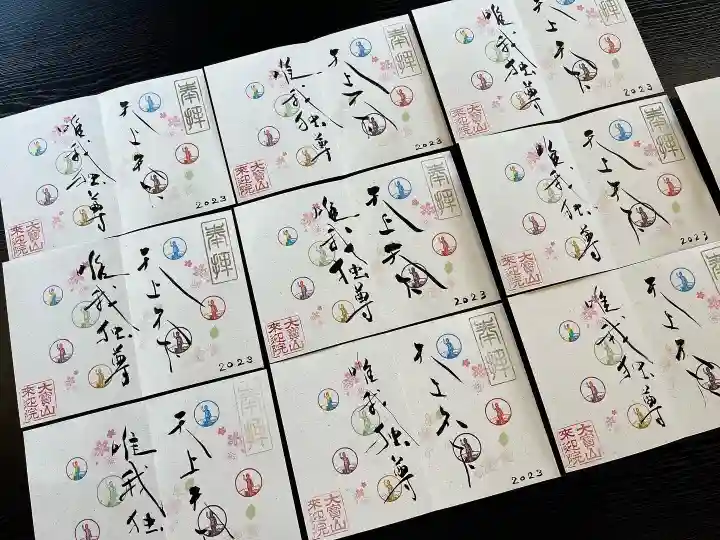 奉拝
天上天下
唯我独尊
2023
大寶山
来迎院
奉拝
天上天下
唯我独尊
2023
大寶山
来迎院
上天下
唯我独尊
2023
大寶山
来迎院
奉拝
天上天下
唯我独尊
2023
大寶山
来迎院
奉拝
天上天下
唯我独尊
2023
大寶山
来迎院
奉拝
天上天下
唯我独尊
2023
大寶山
来迎院
奉拝
天上天下
唯我独
奉拝
天上天下
唯我独尊
2023
大寶山
来迎院
天上天下
唯我独尊
大寶山
来迎院